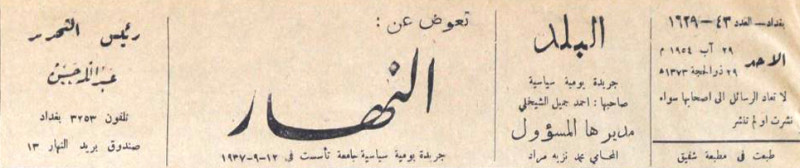 بغداد - العدد ٤٣ - ١٦٢٩
الاحد
٢٩ آب ١٩٥٤ م
٢٩ ذو الحجة ١٣٧٣ هـ
لا تعاد الرسائل الى اصحابها سواء
نشرت او لم تنشر
طبعت في مطبعة شفيق
البلد
جريدة يومية سياسية
صاحبها : احمد جميل الشيخلي
مديرها المسؤول
المحامي محمد نزيه مراد
تعوض عن :
النهار
جريدة يومية سياسية جامعة تأسست في ١٢-٩-١٩٣٧
رئيس التحرير
عبدالله حسن
تلفون ٣٢٥٣ بغداد
صندوق بريد النهار ١٣